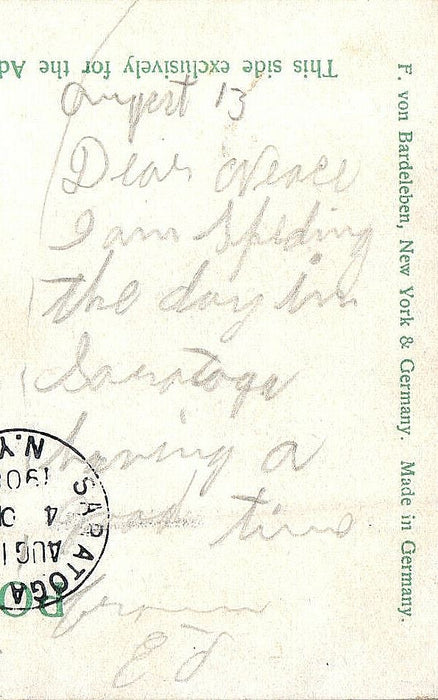 This side exclusively for the Ad
August 13
Dear
I am Spending
the day in
Saratoga
having a
good time
from
Ed
F. von Bardeleben, New York & Germany. Made in Germany.
SARATOGA
AUG 1
4
190
N.Y.
PO